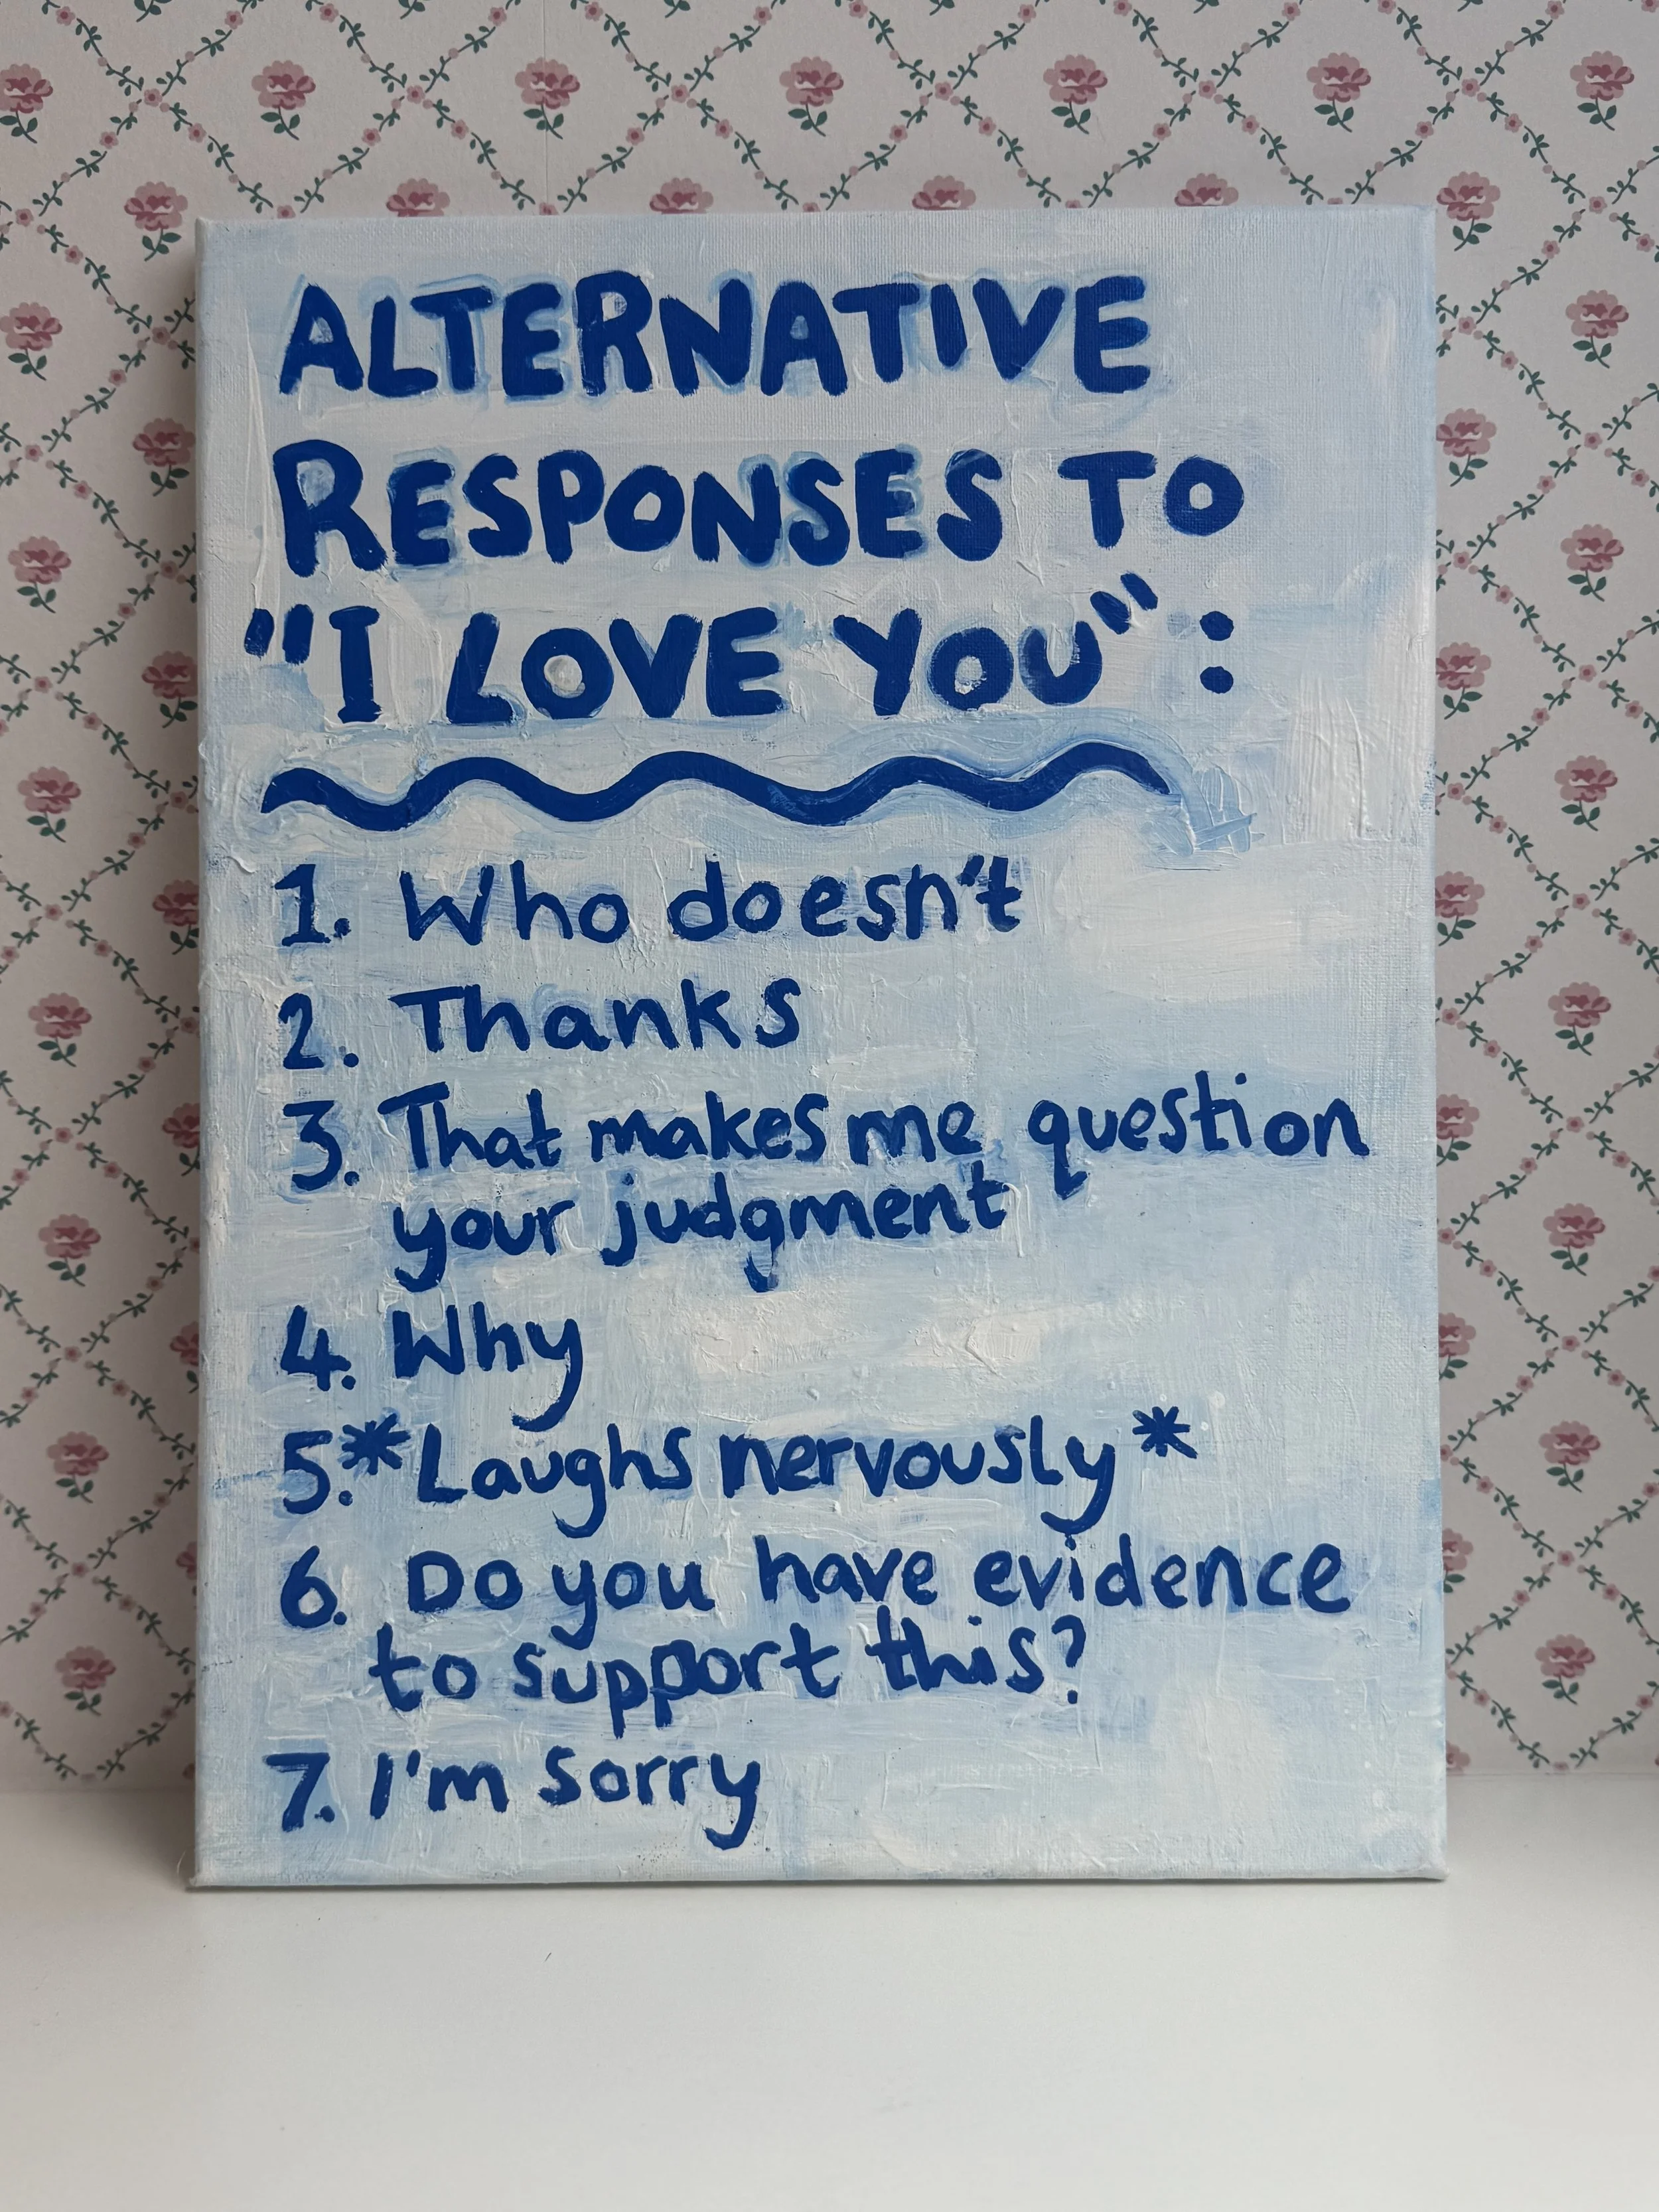 ALTERNATIVE
RESPONSES TO
"I LOVE YOU":
1. Who doesn't
2. Thanks
3. That makes me question
your judgment
4. Why
5. *Laughs nervously*
6. Do you have evidence
to support this?
7. I'm sorry